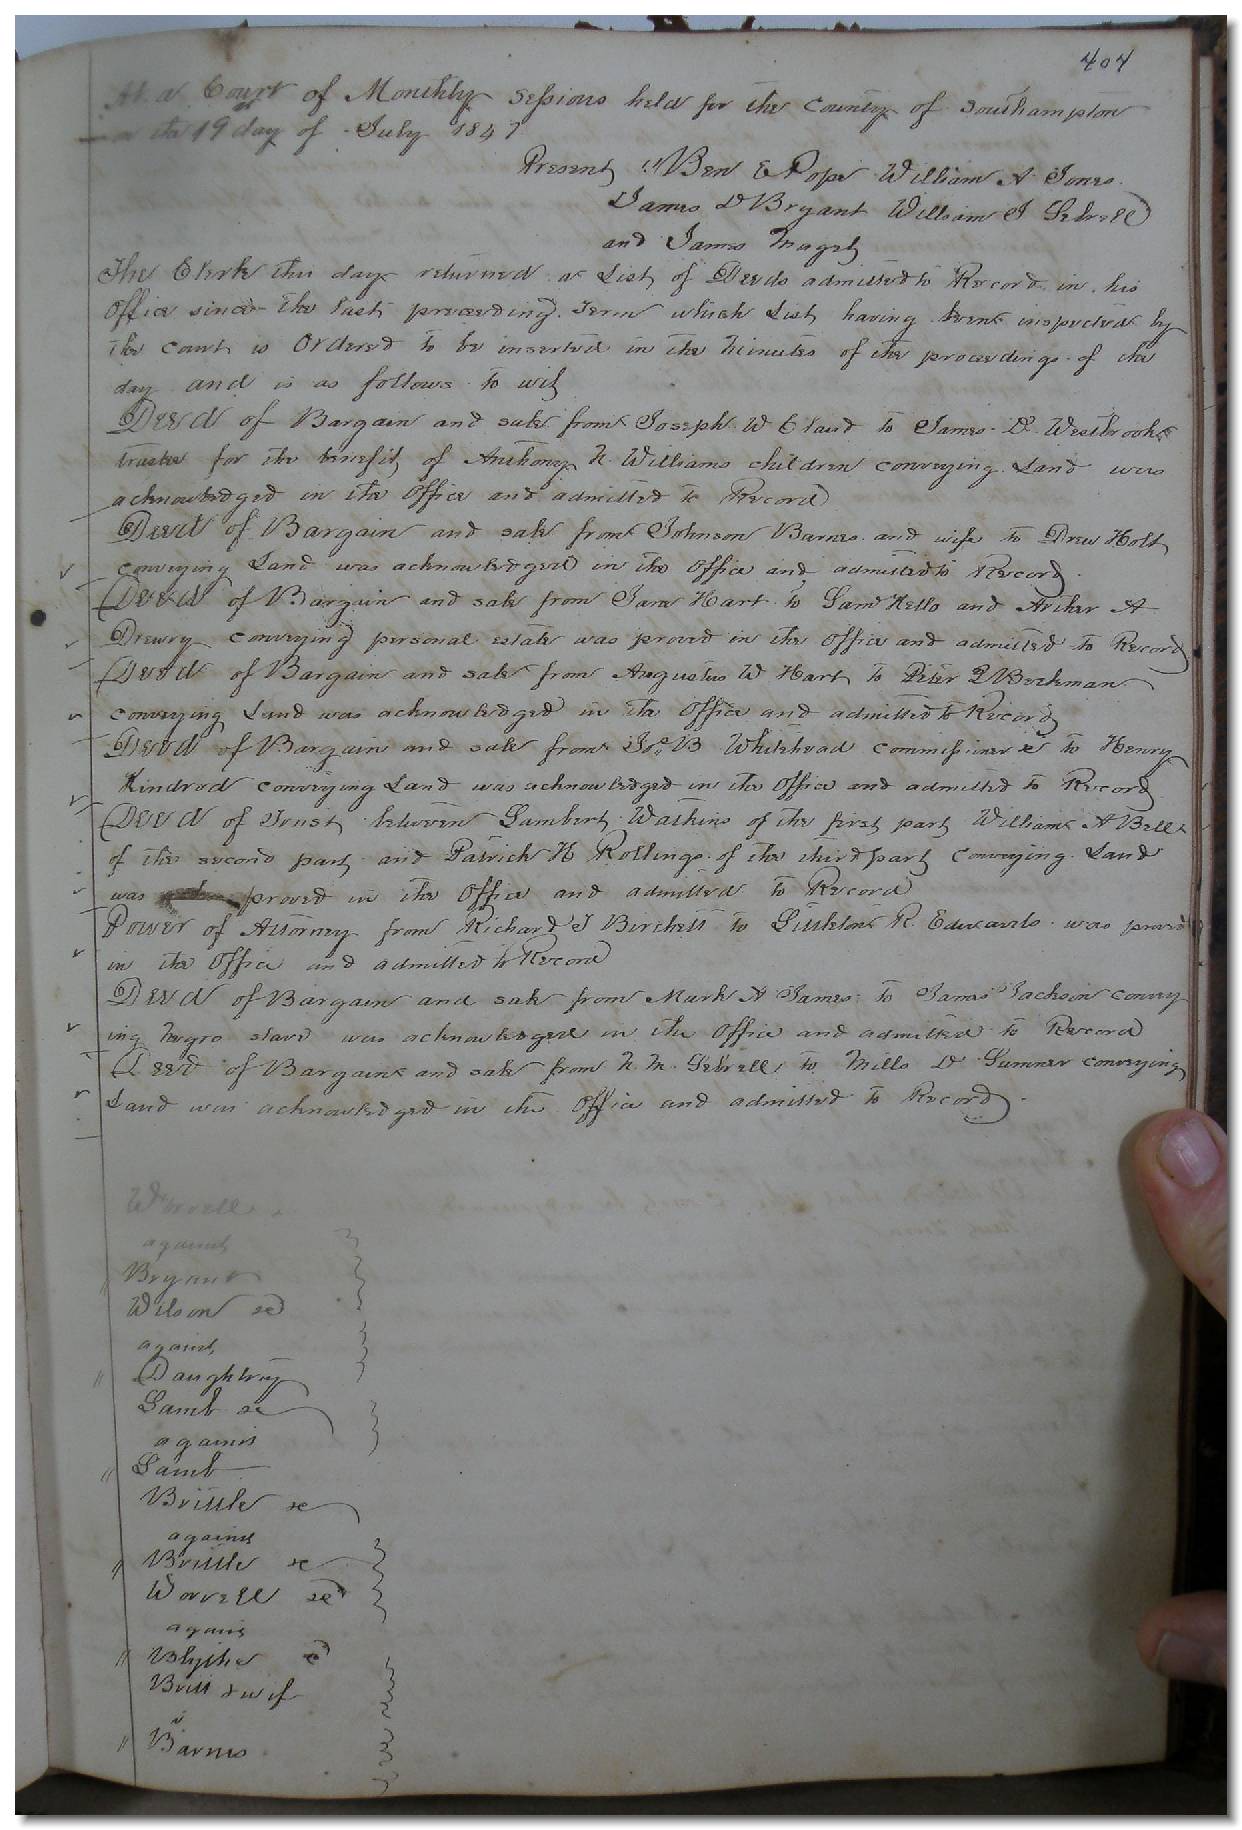 404
At a Court of Monthly Sessions held for the County of Southampton
on the 19 day of July 1847
Present Ben E Pope William A Jones
James D Bryant William J Sebrell
and James Maget
The Clerk this day returned a List of Deeds admitted to Record in his
Office since the last preceeding Term which List having been inspected by
the court is Ordered to be inserted in the Minutes of the proceedings of the
day and is as follows to wit
Deed of Bargain and sale from Joseph W Claud to James D Westbrook
trustee for the benefit of Anthony N Williams children conveying Land was
acknowledged in the office and admitted to Record
Deed of Bargain and sale from Johnson Barnes and wife to Drew Holt
conveying Land was acknowledged in the office and admitted to Record
Deed of Bargain and sale from Sam Hart to Saml Kello and Archer A
Drewry conveying personal estate was proved in the office and admitted to Record
Deed of Bargain and sale from Augustus W Hart to Peter Beckman
conveying Land was acknowledged in the office and admitted to Record
Deed of Bargain and sale from Jos. B Whitehead commissioner &c to Henry
Kindred conveying Land was acknowledged in the office and admitted to Record
Deed of Trust between Lambert Watkins of the first part William A Bell
of the second part and Patrick H Rollings of the third part conveying Land
was proved in the office and admitted to Record
Power of Attorney from Richard J Birchett to Littleton R. Edwards was proved
in the office and admitted to Record
Deed of Bargain and sale from Mark A James to James Jackson convey
ing negro slave was acknowledged in the office and admitted to Record
Deed of Bargain and sale from N. M. Sebrell to Mills D Sumner conveying
Land was acknowledged in the office and admitted to Record.
Worrell
against
Bryant
Wilson &c
against
Daughtry
Lamb &c
against
Lamb
Brittle &c
against
Brittle &c
Worrell &c
against
Blythe &c
Britt & wif
v
Barnes